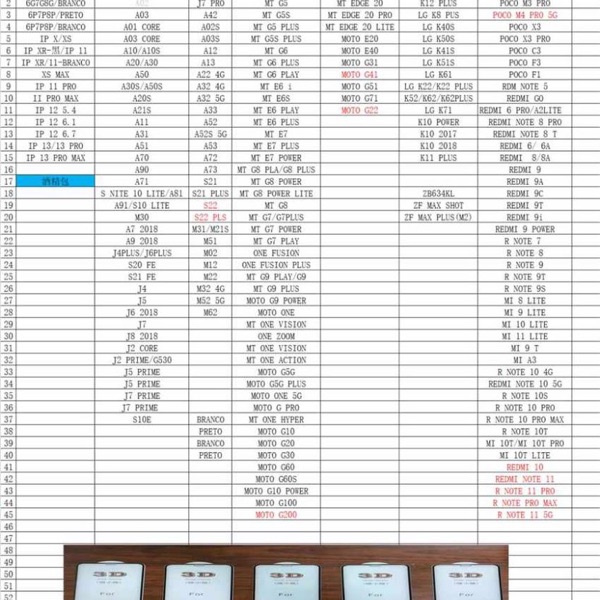 2 6G7G8G/BRANCO A02 J7 PRO MT G5 MT EDGE 20 K12 PLUS POCO M3 PRO
3 6P7P8P/PRETO A03 A42 MT G5S MT EDGE 20 PRO LG K8 PUS POCO M4 PRO 5G
4 6P7P8P/BRANCO A01 CORE A02S MT G5 PLUS MT EDGE 20 LITE LG K40S POCO X3
5 IP X/XS A03 CORE A03S MT G5S PLUS MOTO E20 LG K50S POCO X3 PRO
6 IP XR-黑/IP 11 A10/A10S A12 MT G6 MOTO E40 LG K41S POCO C3
7 IP XR/11-BRANCO A20/A30 A13 MT G6 PLUS MOTO G31 LG K51S POCO F3
8 XS MAX A50 A22 4G MT G6 PLAY MOTO G41 LG K61 POCO F1
9 IP 11 PRO A30S/A50S A32 4G MT E6 i MOTO G51 LG K22/K22 PLUS RDM NOTE 5
10 II PRO MAX A20S A32 5G MT E6S MOTO G71 K52/K62/K62PLUS REDMI GO
11 IP 12 5.4 A21S A33 MT E6 PLAY MOTO G22 LG K71 REDMI 6 PRO/A2LITE
12 IP 12 6.1 A11 A52 MT E6 PLUS K10 POWER REDMI NOTE 8 PRO
13 IP 12 6.7 A31 A52S 5G MT E7 K10 2017 REDMI NOTE 8 T
14 IP 13/13 PRO A51 A53 MT E7 PLUS K10 2018 REDMI 6/ 6A
15 IP 13 PRO MAX A70 A72 MT E7 POWER K11 PLUS REDMI 8/8A
16 A90 A73 MT G8 PLA/G8 PLUS REDMI 9
17 酒精包 A71 S21 MT G8 POWER REDMI 9A
18 S NITE 10 LITE/A81 S21 PLUS MT G8 POWER LITE ZB634KL REDMI 9C
19 A91/S10 LITE S22 MT G8 ZF MAX SHOT REDMI 9T
20 M30 S22 PLS MT G7/G7PLUS ZF MAX PLUS(M2) REDMI 9i
21 A7 2018 M31/M21S MT G7 POWER REDMI 9 POWER
22 A9 2018 M51 MT G7 PLAY R NOTE 7
23 J4PLUS/J6PLUS M02 ONE FUSION R NOTE 8
24 S20 FE M12 ONE FUSION PLUS R NOTE 9
25 S21 FE M22 MT G9 PLAY/G9 R NOTE 9T
26 J4 M32 4G MT G9 PLUS R NOTE 9S
27 J5 M52 5G MOTO G9 POWER MI 8 LITE
28 J6 2018 M62 MOTO ONE MI 9 LITE
29 J7 MT ONE VISION MI 10 LITE
30 J8 2018 ONE ZOOM MI 11 LITE
31 J2 CORE MT ONE HYPER MI 9 T
32 J2 PRIME/G530 MT ONE ACTION MI A3
33 J5 PRIME MOTO G5G R NOTE 10 4G
34 J5 PRIME MOTO G5G PLUS REDMI NOTE 10 5G
35 J7 PRIME MOTO ONE 5G R NOTE 10S
36 J7 PRIME MOTO G PRO R NOTE 10 PRO
37 S10E BRANCO MT ONE HYPER R NOTE 10 PRO MAX
38 PRETO MOTO G10 R NOTE 10T
39 BRANCO MOTO G20 MI 10T/MI 10T PRO
40 PRETO MOTO G30 MI 10T LITE
41 MOTO G60 REDMI 10
42 MOTO G60S REDMI NOTE 11
43 MOTO G10 POWER R NOTE 11 PRO
44 MOTO G100 R NOTE PRO MAX
45 MOTO G200 R NOTE 11 5G
46
47
48
49
50
51
52
3D 3D 3D 3D 3D
For For For For For